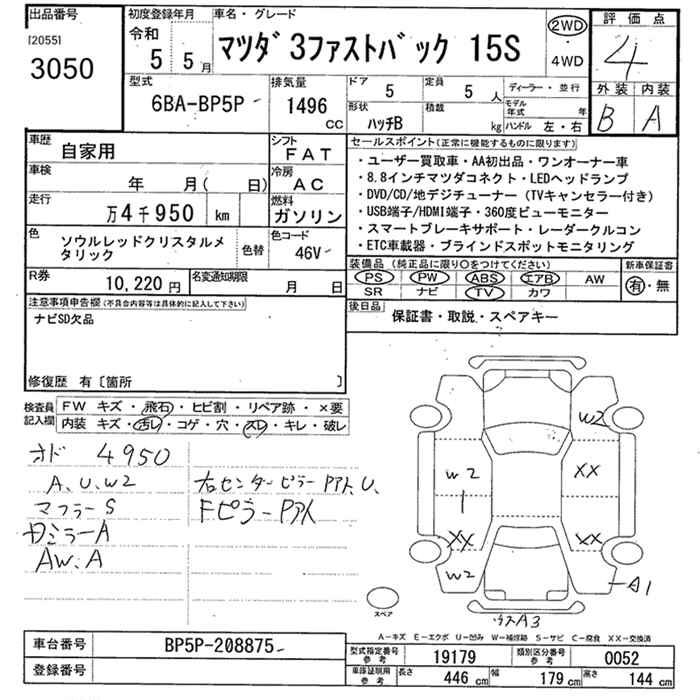 出品番号
[2055]
3050
初度登録年月
令和
5 5月
車名・グレード
マツダ 3ファストバック 15S
2WD
・
4WD
評価点
4
外装 内装
B A
型式
6BA-BP5P
排気量
1496
CC
ドア
5
定員
5 人
ディーラー・並行
形状
ハッチB
積載
kg
モデル年式 年
ハンドル 左・右
車歴
自家用
シフト
FAT
車検
年 月( 日)
冷房
AC
走行
万4千950 km
燃料
ガソリン
色
ソウルレッドクリスタルメ
タリック
色替
色コード
46V
R券
10,220円
名変通知期限
月 日
セールスポイント(正常に機能するものに限ります)
・ユーザー買取車・AA初出品・ワンオーナー車
・8.8インチマツダコネクト・LEDヘッドランプ
・DVD/CD/地デジチューナー(TVキャンセラー付き)
・USB端子/HDMI端子・360度ビューモニター
・スマートブレーキサポート・レーダークルコン
・ETC車載器・ブラインドスポットモニタリング
装備品(純正品に限り○をつけてください)
新車保証書
PS PW ABS エアB AW
SR ナビ TV カワ
有・無
後日品
保証書・取説・スペアキー
注意事項申告欄(不具合内容等は具体的に記入して下さい)
ナビSD欠品
修復歴 有〔箇所 〕
検査員
記入欄
FW キズ・飛石・ヒビ割・リペア跡・×要
内装 キズ・汚レ・コゲ・穴・スレ・キレ・破レ
オド 4950
A、U、W2
マフラーS
ドミラーA
AW、A
右センターピラーPアト、U、
FピラーPアト
W2
W2
1
XX
XX
XX
W2
A1
A3
スペア
A-キズ E-エクボ U-凹み W-補修跡 S-サビ C-腐食 XX-交換済
車台番号
BP5P-208875
登録番号
型式指定番号
参考
19179
類別区分番号
参考
0052
車庫証明用
参考
長さ
446 cm
幅
179 cm
高さ
144 cm